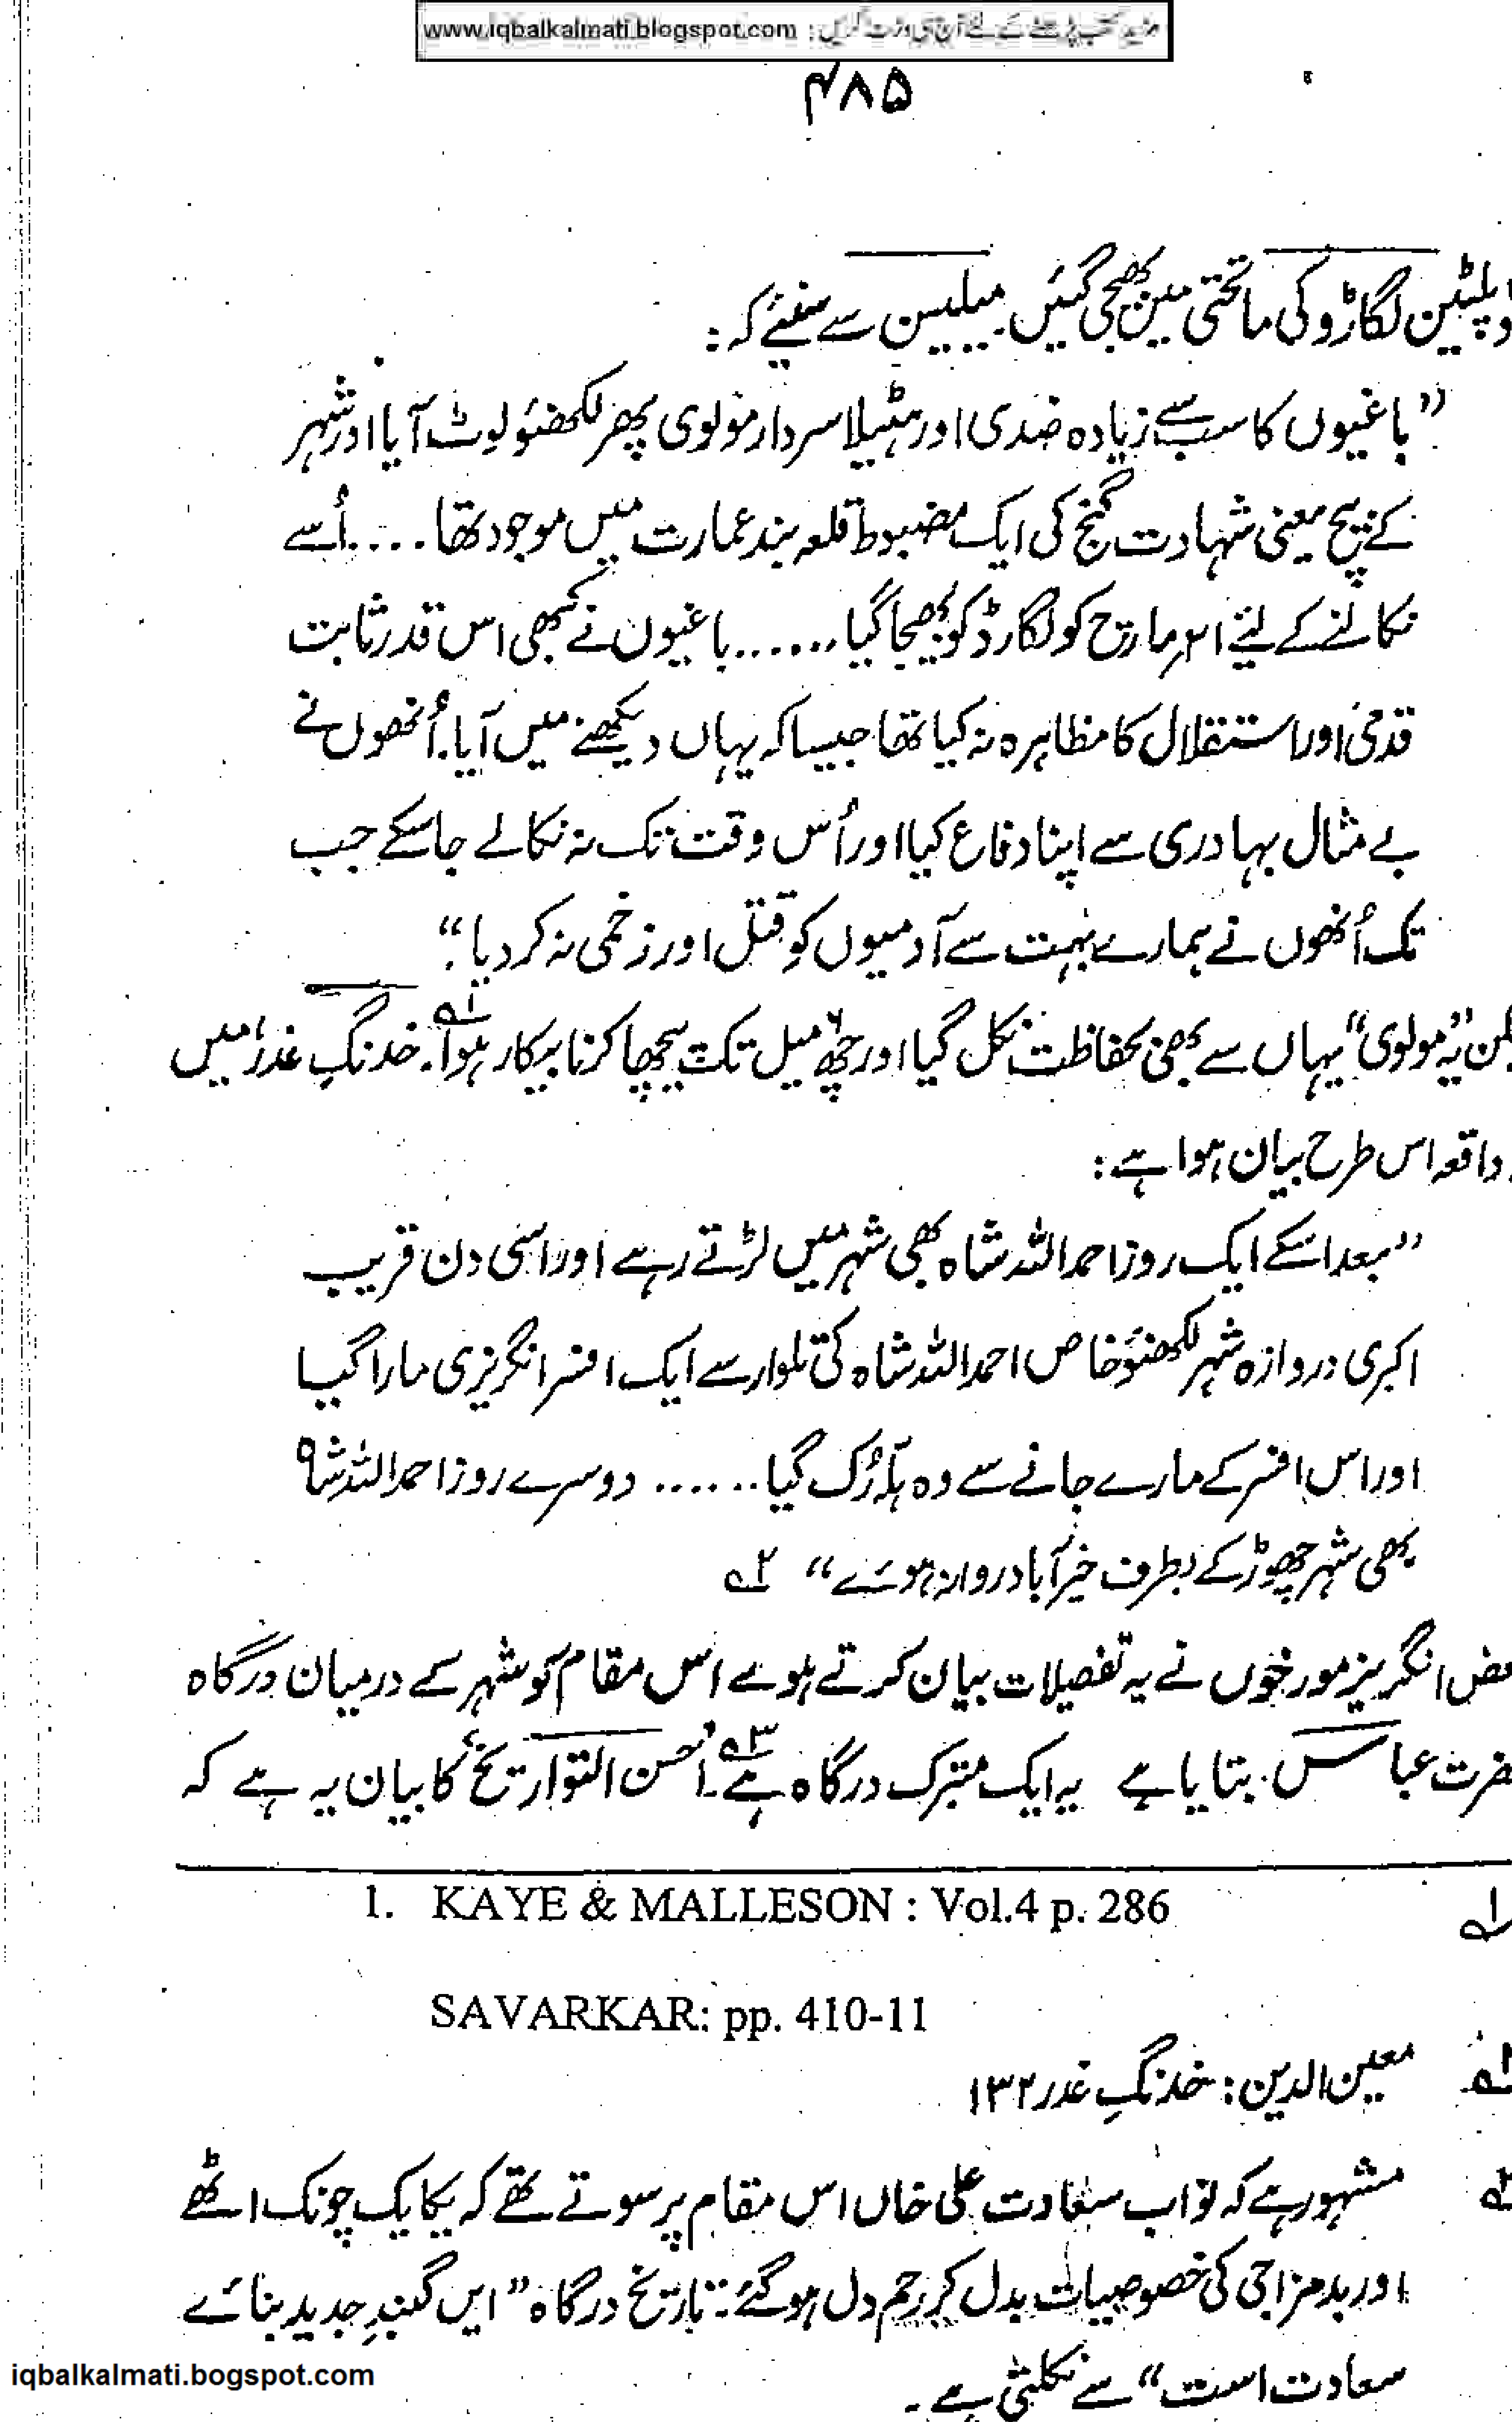 مزید کتب پڑھنے کے لئے آج ہی وزٹ کریں : www.iqbalkalmati.blogspot.com
۴۸۵
پلٹین لگاڑو کی ماتحتی مین بھیجی گئیں. میلیسن سے سنیئے کہ:
”باغیوں کا سب سے زیادہ ضدی اور ہٹیلا سردار مولوی پھر لکھنئو لوٹ آیا اور شہر
کے بیچ یعنی شہادت گنج کی ایک مضبوط قلعہ بند عمارت میں موجود تھا..... اُسے
نکالنے کے لیئے ۲۱ مارچ کو لگارڈ کو بھیجا گیا...... باغیوں نے کبھی اس قدر ثابت
قدمی اور استقلال کا مظاہرہ نہ کیا تھا جیسا کہ یہاں دیکھنے میں آیا. اُنھوں نے
بے مثال بہادری سے اپنا دفاع کیا اور اُس وقت تک نہ نکالے جا سکے جب
تک اُنھوں نے ہمارے بہت سے آدمیوں کو قتل اور زخمی نہ کر دیا.“
یہ ”مولوی“ یہاں سے بھی بحفاظت نکل گیا اور چھ میل تک پیچھا کرنا بیکار ہوا. ۱ خدنگِ غدر میں
واقعہ اس طرح بیان ہوا ہے:
”بعد اسکے ایک روز احمد اللہ شاہ بھی شہر میں لڑتے رہے اور اسی دن قریب
اکبری دروازہ شہر لکھنئو خاص احمد اللہ شاہ کی تلوار سے ایک افسر انگریزی مارا گیا
اور اس افسر کے مارے جانے سے وہ ہلّہ رُک گیا...... دوسرے روز احمد اللہ شاہ
بھی شہر چھوڑ کے بطرف خیر آباد روانہ ہوئے“ ۲
انگریز مورخوں نے یہ تفصیلات بیان کرتے ہوے اس مقام کو شہر کے درمیان درگاہ
عباس بتایا ہے یہ ایک متبرک درگاہ ہے. ۳ احسن التواریخ کا بیان یہ ہے کہ
۱ 1. KAYE & MALLESON : Vol.4 p. 286
SAVARKAR: pp. 410-11
۲ معین الدین: خدنگِ غدر ۱۳۲
مشہور ہے کہ نواب سعادت علی خاں اس مقام پر سوتے تھے کہ یکایک چونک اٹھے
اور بد مزاجی کی خصوصیات بدل کر رحم دل ہو گئے: تاریخ درگاہ ”ایں گنبدِ جدید بنائے
سعادت است“ سے نکلتی ہے.
iqbalkalmati.bogspot.com